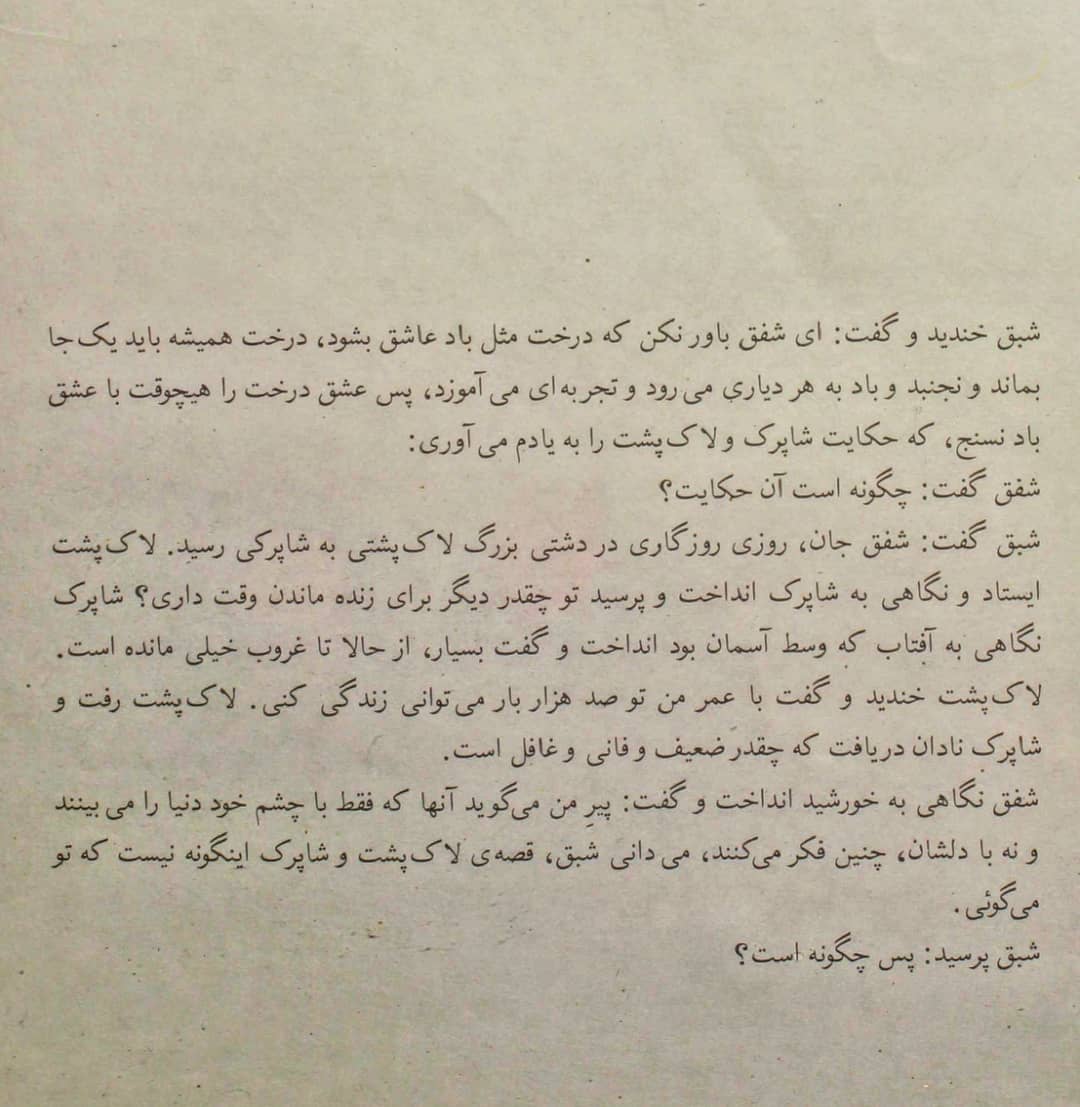 شبق خندید و گفت: ای شفق باور نکن که درخت مثل باد عاشق بشود، درخت همیشه باید یک‌جا
بماند و نجنبد و باد به هر دیاری می‌رود و تجربه‌ای می‌آموزد، پس عشق درخت را هیچوقت با عشق
باد نسنج، که حکایت شاپرک و لاک‌پشت را به یادم می‌آوری:
شفق گفت: چگونه است آن حکایت؟
شبق گفت: شفق جان، روزی روزگاری در دشتی بزرگ لاک‌پشتی به شاپرکی رسید. لاک‌پشت
ایستاد و نگاهی به شاپرک انداخت و پرسید تو چقدر دیگر برای زنده ماندن وقت داری؟ شاپرک
نگاهی به آفتاب که وسط آسمان بود انداخت و گفت بسیار، از حالا تا غروب خیلی مانده است.
لاک‌پشت خندید و گفت با عمر من تو صد هزار بار می‌توانی زندگی کنی. لاک‌پشت رفت و
شاپرک نادان دریافت که چقدر ضعیف و فانی و غافل است.
شفق نگاهی به خورشید انداخت و گفت: پیرِ من می‌گوید آنها که فقط با چشم خود دنیا را می‌بینند
و نه با دلشان، چنین فکر می‌کنند، می‌دانی شبق، قصه‌ی لاک‌پشت و شاپرک اینگونه نیست که تو
می‌گوئی.
شبق پرسید: پس چگونه است؟